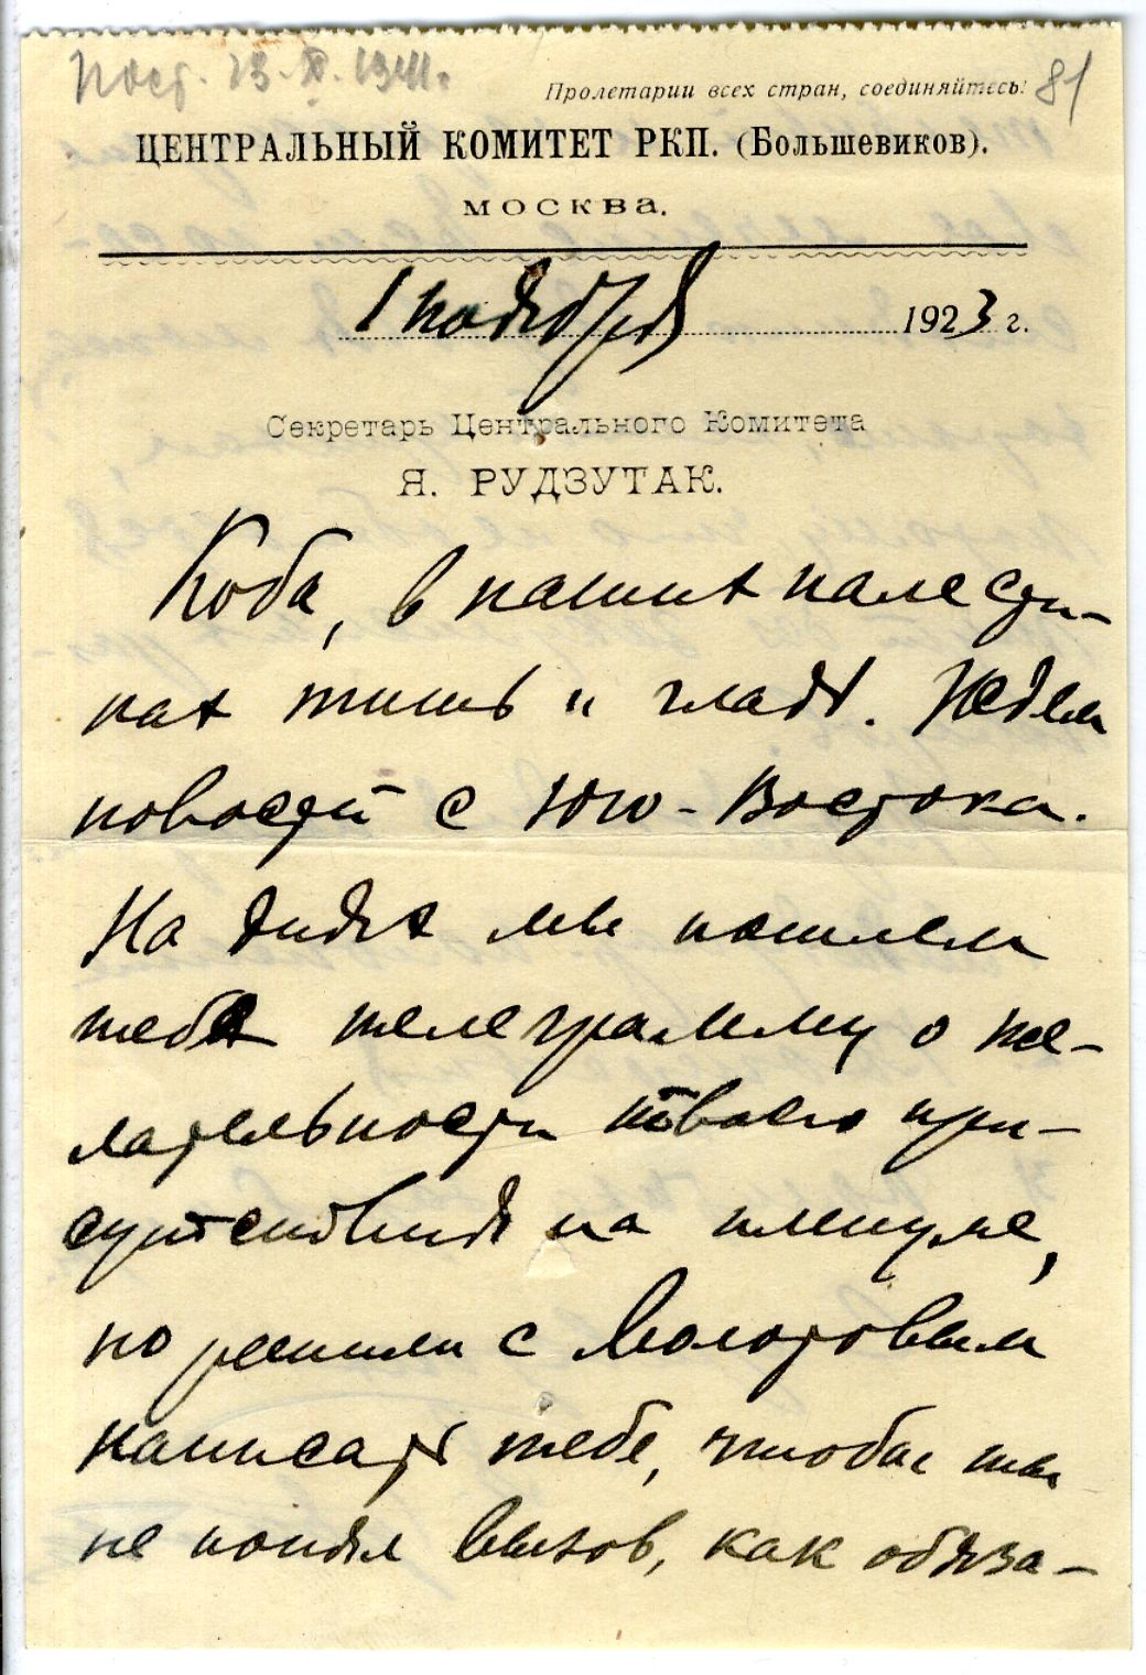 Пост. 23.XI.1941.
81
Пролетарии всех стран, соединяйтесь!
ЦЕНТРАЛЬНЫЙ КОМИТЕТ РКП. (Большевиков).
МОСКВА.
1 ноября 1923 г.
Секретарь Центрального Комитета
Я. РУДЗУТАК.
Коба, в наших палести-
нах тишь и гладь. Ждем
новостей с Юго-Востока.
На днях мы пошлем
тебе телеграмму о же-
лательности твоего при-
сутствия на пленуме,
но решили с Молотовым
написать тебе, чтобы ты
не понял вызов, как обяза-